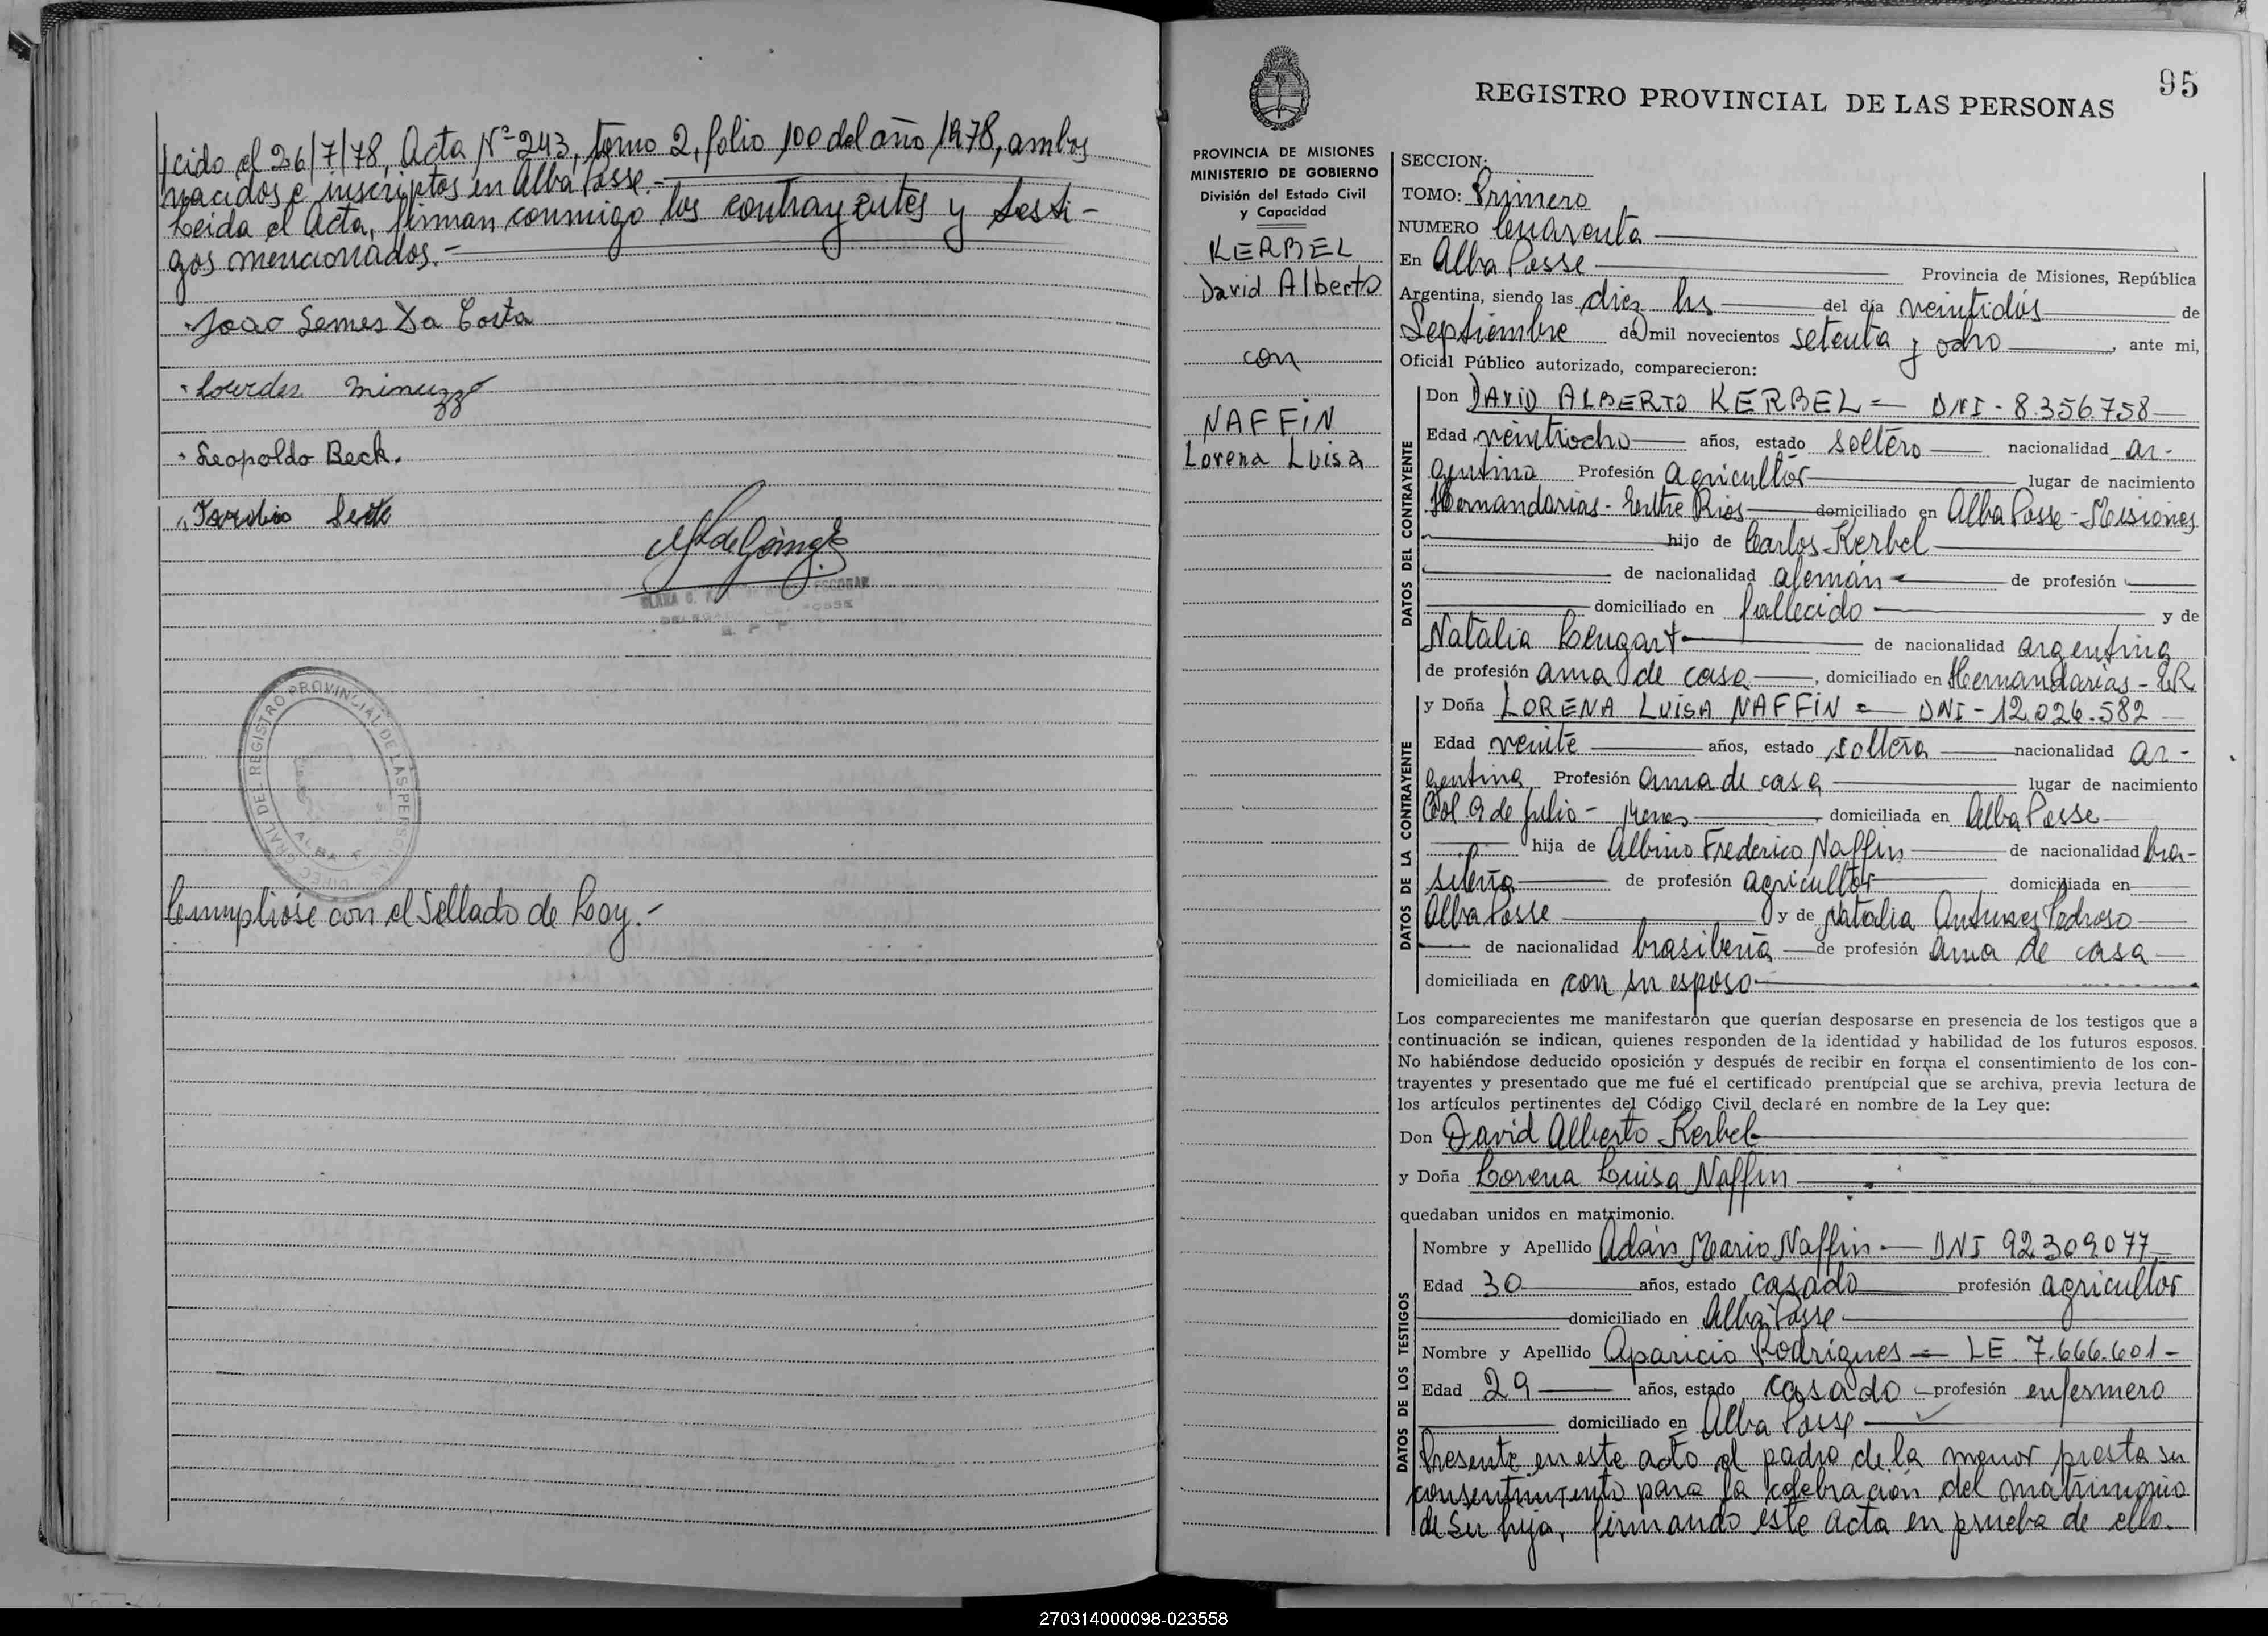 /cido el 26/7/78, Acta Nº 243, tomo 2, folio 100 del año 1978, ambos
nacidos e inscriptos en Alba Posse.-
Leida el Acta, firman conmigo los contrayentes y testi-
gos mencionados.-
Joao Lemes Da Costa
Lourdes Minuzzo
Leopoldo Beck.
ESCOBAR
DIREC. GRAL DEL REGISTRO PROVINCIAL DE LAS PERSONAS
ALBA P
Cumplióse con el Sellado de Ley.-
95
REGISTRO PROVINCIAL DE LAS PERSONAS
PROVINCIA DE MISIONES
MINISTERIO DE GOBIERNO
División del Estado Civil
y Capacidad
KERBEL
David Alberto
con
NAFFIN
Lorena Luisa
SECCION:
TOMO: Primero
NUMERO Cuarenta
En Alba Posse Provincia de Misiones, República
Argentina, siendo las diez hs del día veintidós de
Septiembre de mil novecientos setenta y ocho, ante mi,
Oficial Público autorizado, comparecieron:
DATOS DEL CONTRAYENTE
Don DAVID ALBERTO KERBEL = DNI - 8.356.758
Edad veintiocho años, estado soltero nacionalidad ar-
gentina Profesión agricultor lugar de nacimiento
Hernandarias - Entre Rios domiciliado en Alba Posse - Misiones
hijo de Carlos Kerbel
de nacionalidad alemán de profesión
domiciliado en fallecido y de
Natalia Lengart de nacionalidad argentina
de profesión ama de casa, domiciliado en Hernandarias - ER
DATOS DE LA CONTRAYENTE
y Doña LORENA LUISA NAFFIN = DNI - 12.026.582
Edad veinte años, estado soltera nacionalidad ar-
gentina Profesión ama de casa lugar de nacimiento
Col 9 de Julio - domiciliada en Alba Posse
hija de Albino Frederico Naffin de nacionalidad bra-
sileña de profesión agricultor domiciliada en
Alba Posse y de Natalia Antunes Pedroso
de nacionalidad brasileña de profesión ama de casa
domiciliada en con su esposo
Los comparecientes me manifestarón que querían desposarse en presencia de los testigos que a
continuación se indican, quienes responden de la identidad y habilidad de los futuros esposos.
No habiéndose deducido oposición y después de recibir en forma el consentimiento de los con-
trayentes y presentado que me fué el certificado prenupcial que se archiva, previa lectura de
los artículos pertinentes del Código Civil declaré en nombre de la Ley que:
Don David Alberto Kerbel
y Doña Lorena Luisa Naffin
quedaban unidos en matrimonio.
DATOS DE LOS TESTIGOS
Nombre y Apellido Adán Mario Naffin - DNI 92309077
Edad 30 años, estado casado profesión agricultor
domiciliado en Alba Posse
Nombre y Apellido Aparicio Rodrigues = LE. 7.666.601-
Edad 29 años, estado casado profesión enfermero
domiciliado en Alba Posse
Presente en este acto el padre de la menor presta su
consentimiento para la celebración del matrimonio
de su hija, firmando este acta en prueba de ello.
270314000098-023558